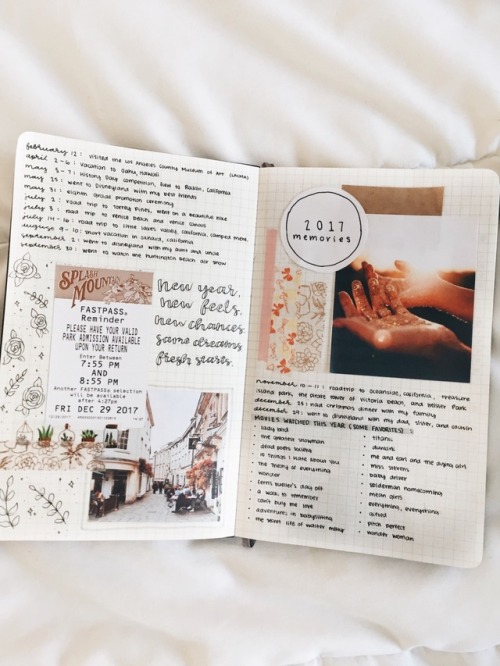 february 12: visited the Los Angeles County Museum of Art (LACMA)
april 2-6: vacation to Oahu, Hawaii
may 5-7: History Day competition, Rocklin, California
may 25: went to Disneyland with my best friends
may 31: eighth grade promotion ceremony
july 2: road trip to Torrey Pines, went on a beautiful hike
july 3: road trip to venice beach and venice canals
july 14-16: road trip to california, camped there
august 9-10: short vacation in california
september 2: went to disneyland with my aunt and uncle
september 30: went to watch the huntington beach air show
SPLASH
MOUNTAIN
FASTPASS®
Reminder
PLEASE HAVE YOUR VALID
PARK ADMISSION AVAILABLE
UPON YOUR RETURN
Enter Between
7:55 PM
AND
8:55 PM
Another FASTPASS® selection
will be available
after 4:27pm
FRI DEC 29 2017
new year,
new feels,
new chances.
same dreams,
fresh starts.
2017
memories
november 10-11: roadtrip to oceanside, california, treasure
island park, the pirate tower of victoria beach, and heisler park
december 25: had christmas dinner with my family
december 29: went to disneyland with my dad, sister, and cousin
MOVIES WATCHED THIS YEAR (SOME FAVORITES):
• lady bird
• the greatest showman
• dead poets society
• 10 things i hate about you
• the theory of everything
• wonder
• ferris bueller's day off
• a walk to remember
• can't buy me love
• adventures in babysitting
• the secret life of walter mitty
• titanic
• dunkirk
• me and earl and the dying girl
• miss stevens
• baby driver
• spiderman homecoming
• mean girls
• everything, everything
• gifted
• pitch perfect
• wonder woman